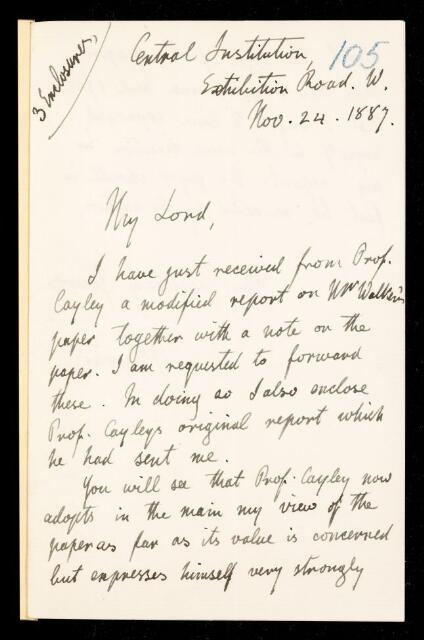 3 Enclosures,
Central Institution,
105
Exhibition Road. W.
Nov. 24. 1887.
My Lord,
I have just received from Prof.
Cayley a modified report on Mr Walker's
paper together with a note on the
paper. I am requested to forward
these. In doing so I also enclose
Prof. Cayleys original report which
he had sent me.
You will see that Prof. Cayley now
adopts in the main my view of the
paper as far as its value is concerned
but expresses himself very strongly